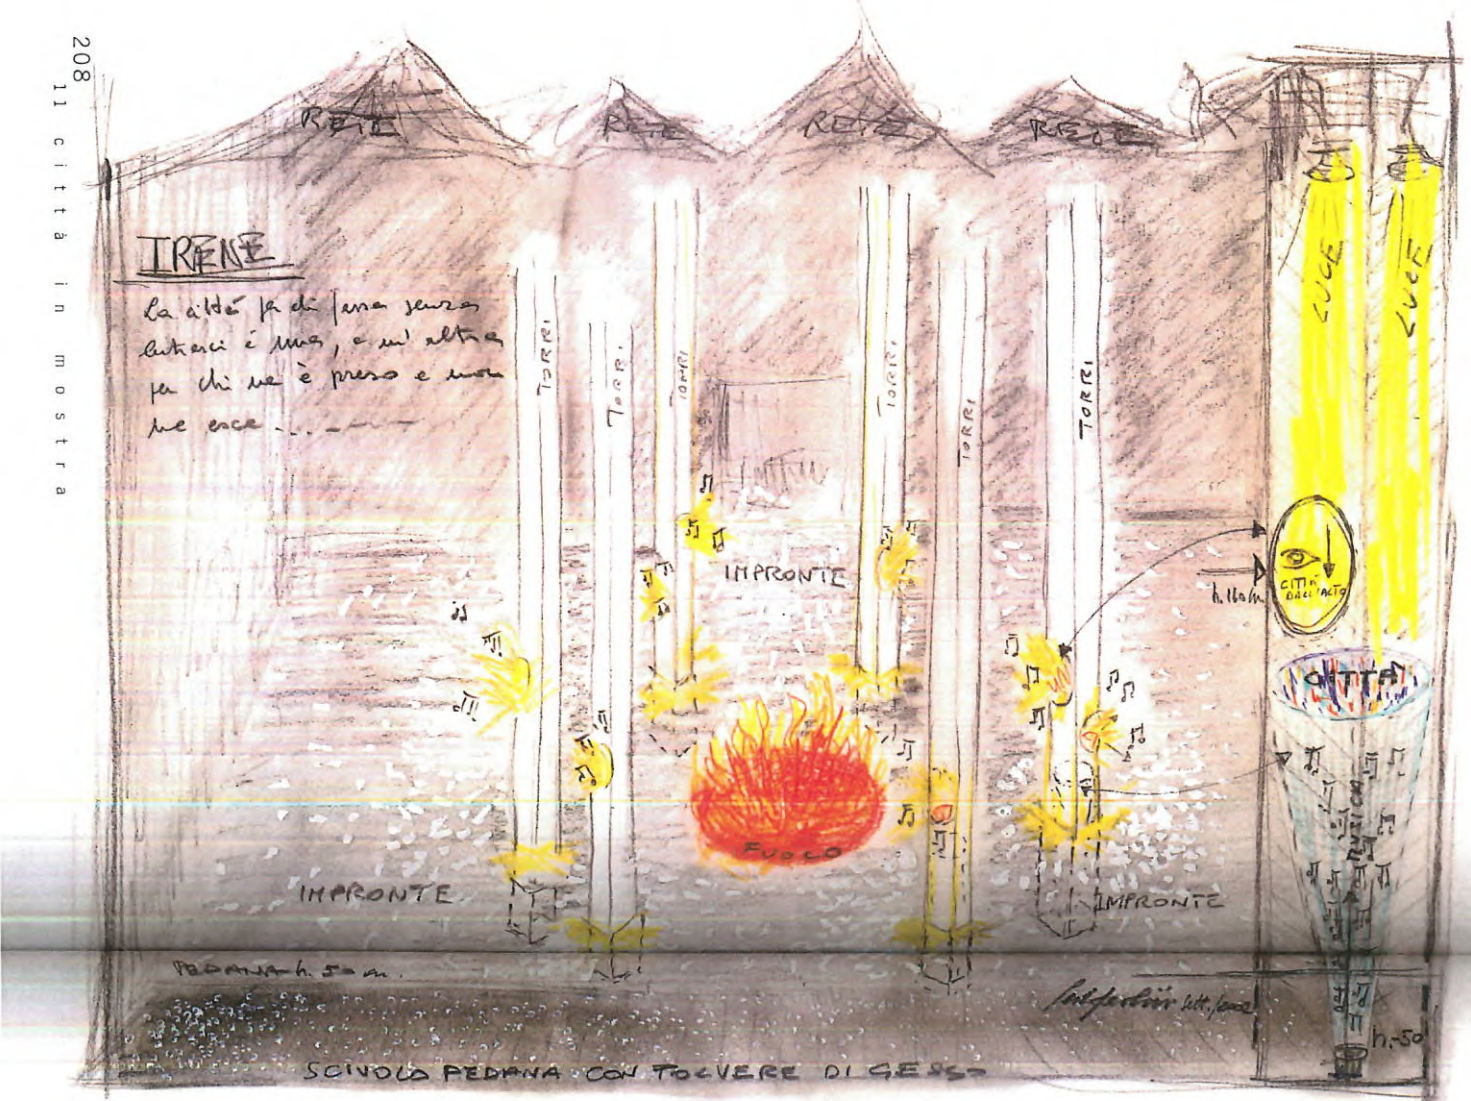 208
11 città in mostra
RETE
RETE
RETE
RETE
IRENE
La città per chi passa senza
entrarci è una, e un'altra
per chi ne è preso e non
ne esce....
TORRI
TORRI
TORRI
TORRI
TORRI
TORRI
LUCE
LUCE
IMPRONTE
CITTÀ
DALL'ALTO
CITTÀ
MUSICA
FUOCO
IMPRONTE
IMPRONTE
PEDANA h. 50 m.
h.-50
SCIVOLO PEDANA CON POLVERE DI GESSO